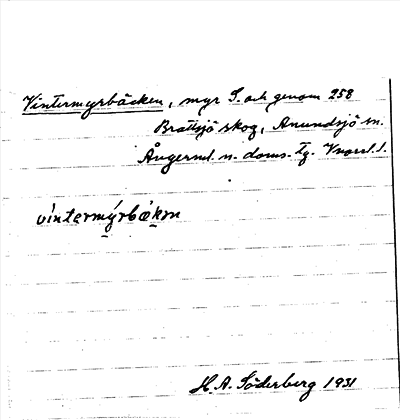 Vintermyrbäcken, myr S. och genom 258
Brattsjö skog, Anundsjö sn.
Ångerml. n. doms. Tg. Vnorrl. l.
víntermýrbäkən
H. A. Söderberg 1931